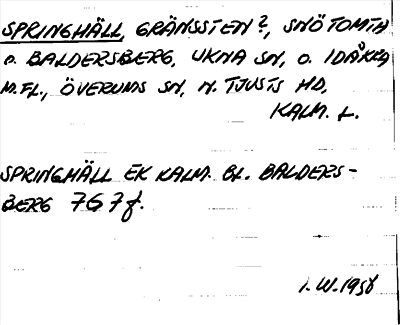 SPRINGHÄLL, GRÄNSSTEN?, SNÖTOMTA
O. BALDERSBERG, UKNA SN, O. IDÅKRA
M.FL., ÖVERUMS SN, N. TJUSTS HD,
KALM. L.
SPRINGHÄLL EK KALM. BL. BALDERS-
BERG 767f.
I.W.1958